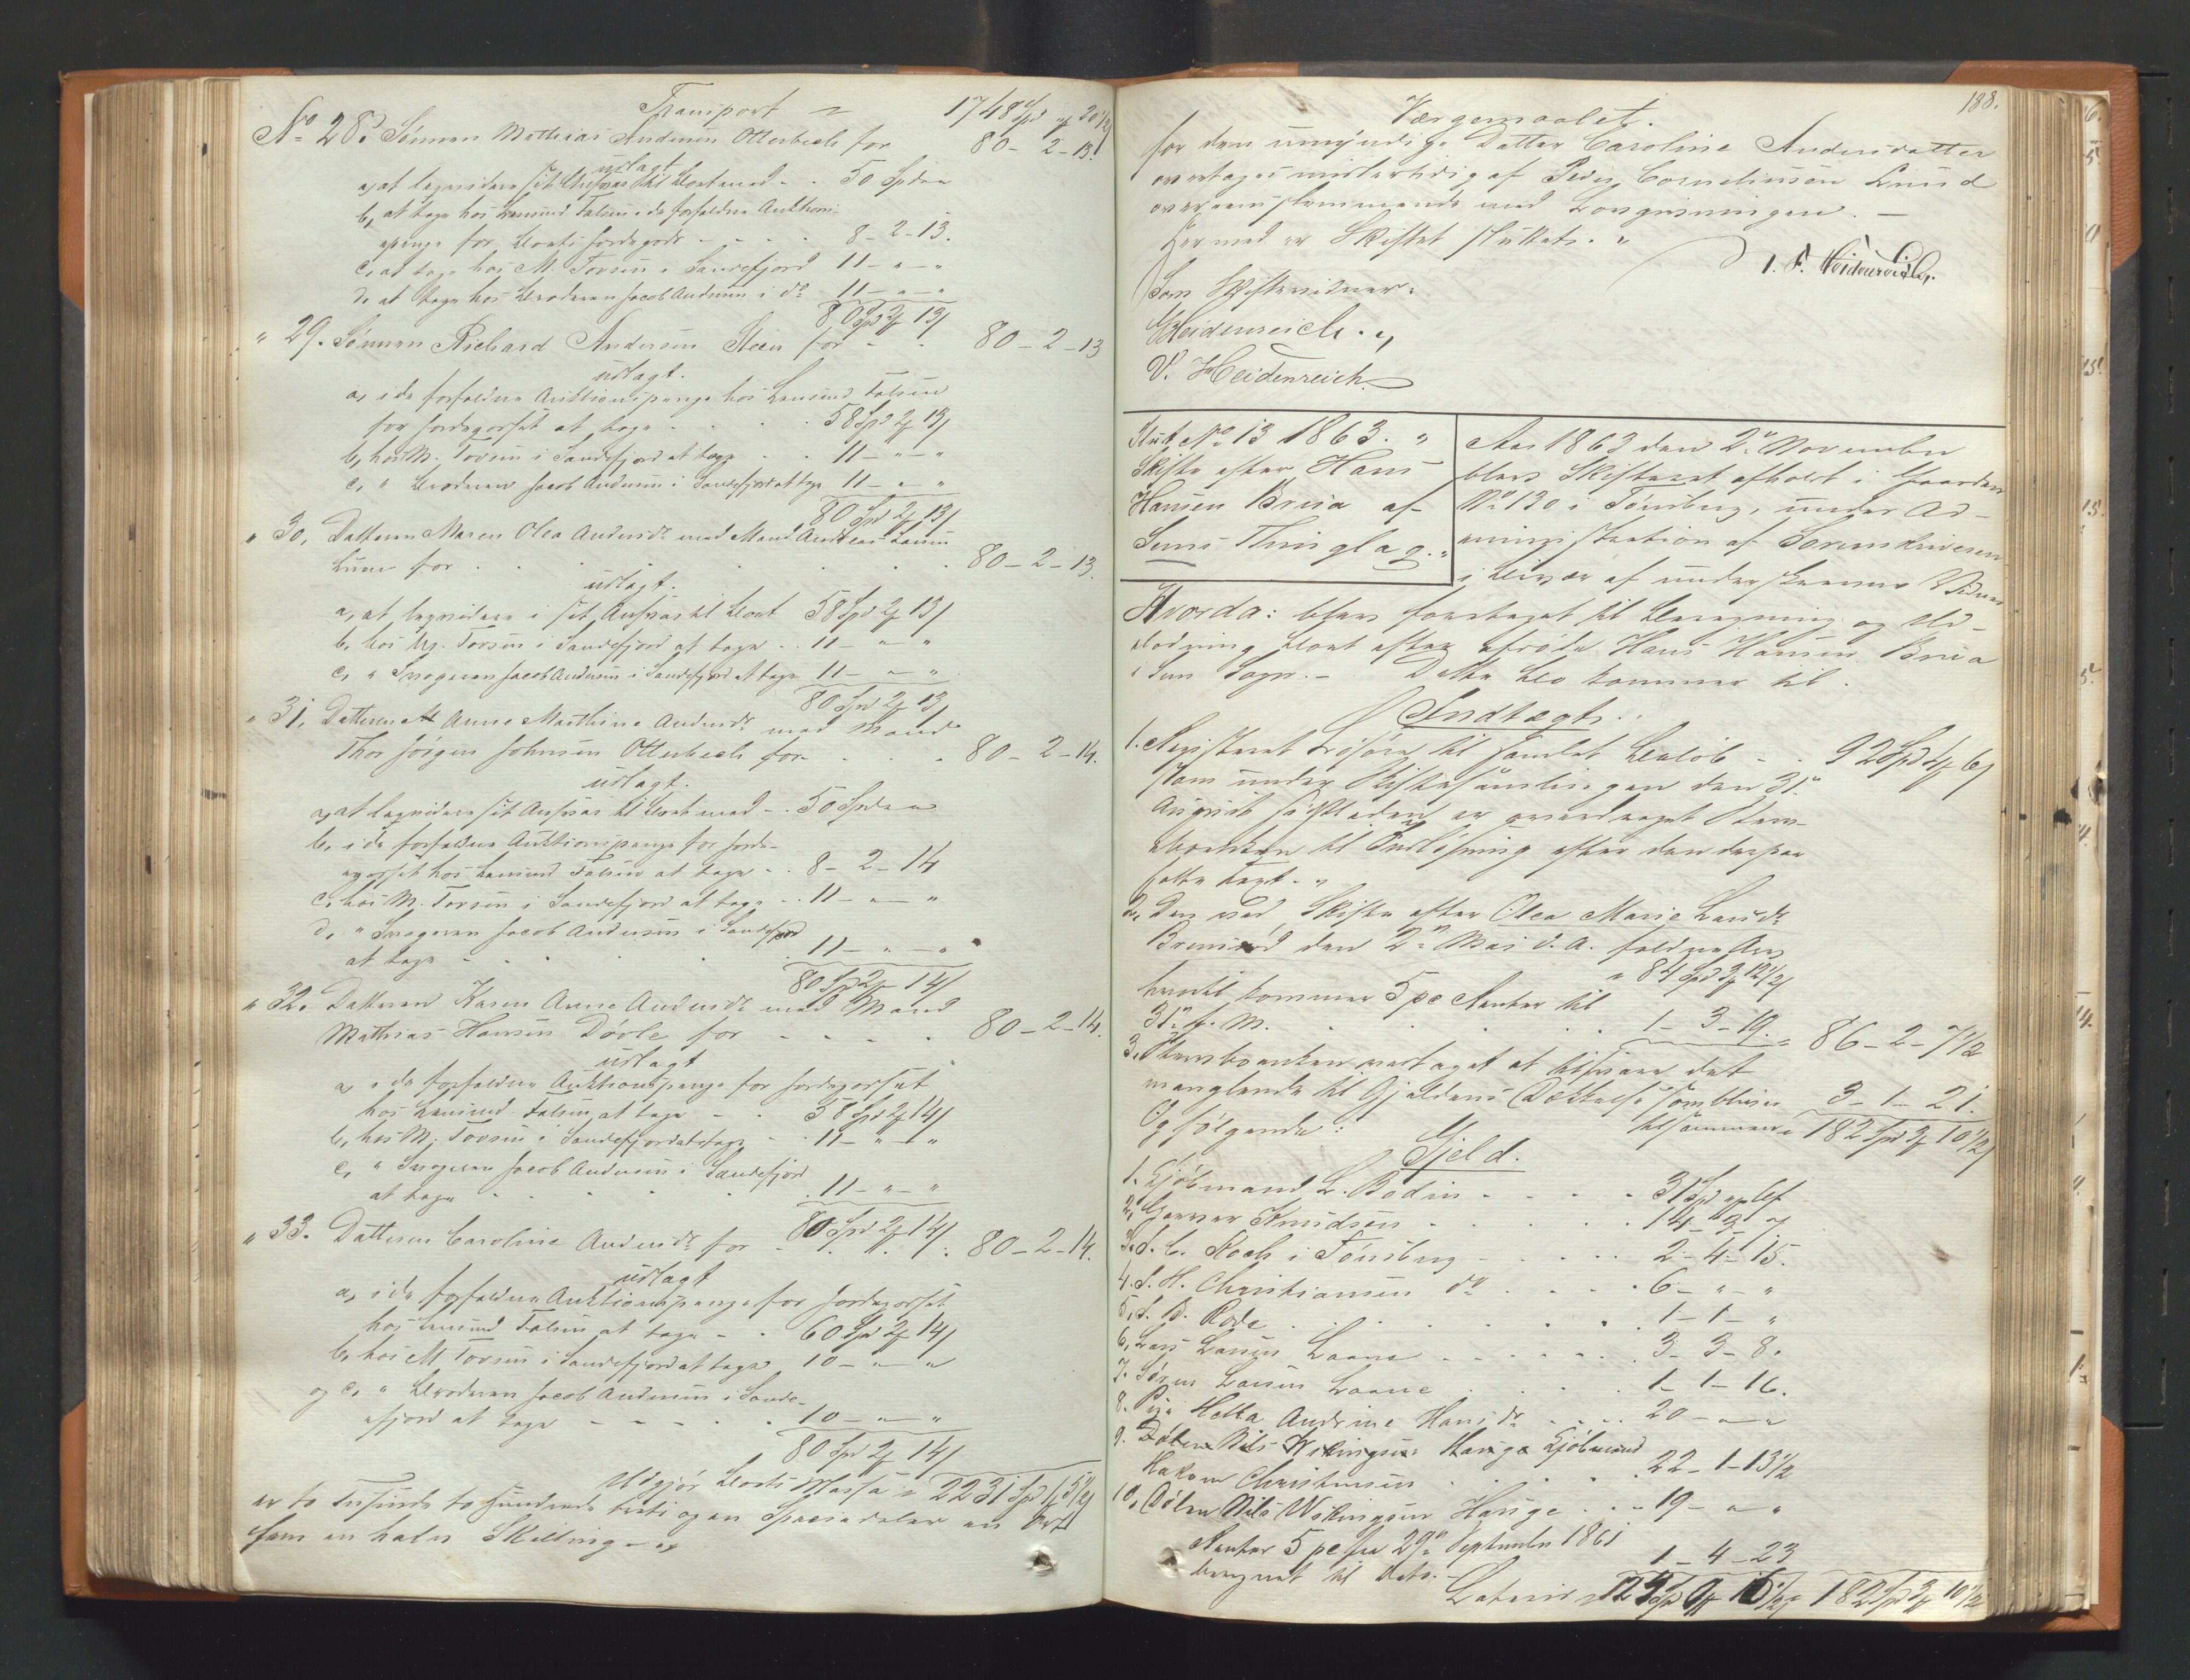 Transport = 1748 Spd " 20 1/2
No 28. Sønnen Mathias Andersen Otterbech for 80 - 2 - 13.
udlagt
a, at beqvidere sit Ansvar til Boet med - . 50 Spd " "
b, at tage hos Lensmd Falsen i de forfaldne Auktions-
penge for Boets Jordegods - - - - 8 - 2 - 13.
c, at tage hos M. Torsen i Sandefjord 11 - " - "
d, at tage hos Broderen Jacob Andersen i do 11 - " - "
80 Spd 2 13
" 29. Sønnen Richard Andersen Steen for - - 80 - 2 - 13
udlagt.
a, i de forfaldne Auktionspenge hos Lensmd Falsen
for Jordegodset at tage - - - - 58 Spd 2 13
b, hos M. Torsen i Sandefjord at tage - . 11 - " - "
c, " Broderen Jacob Andersen i Sandefjord at tage 11 - " - "
80 Spd 2 13
" 30, Datteren Maren Olea Andersdr med Mand Andreas Larsen
for . . . . . . 80 - 2 - 13.
udlagt.
a, at beqvidere i sit Ansvar til Boet 58 Spd 2 13
b, hos M. Torsen i Sandefjord at tage . . 11 - " - "
c, " Svogeren Jacob Andersen i Sandefjord at tage 11 - " - "
80 Spd 2 13
" 31, Datteren Anne Marthine Andersdr med Mand
Thor Jørgen Johnsen Otterbech for . . . 80 - 2 - 14.
udlagt.
a, at beqvidere sit Ansvar til Boet med - . 50 Spd " "
b, i de forfaldne Auktionspenge for Jorde-
godset hos Lensmd Falsen at tage . . 8 - 2 - 14
c, hos M. Torsen i Sandefjord at tage - . 11 - " - "
d, " Svogeren Jacob Andersen i Sandefjord
at tage - - - . . 11 - " - "
80 Spd 2 14
" 32. Datteren Karen Anne Andersdr med Mand
Mathias Hansen Døvle for - - - . 80 - 2 - 14.
udlagt
a, i de forfaldne Auktionspenge for Jordegodset
hos Lensmd Falsen at tage - . 58 Spd 2 14
b, hos M. Torsen i Sandefjord at tage - . 11 - " - "
c, " Svogeren Jacob Andersen i Sandefjord
at tage - - . . . 11 - " - "
80 Spd 2 14
" 33. Datteren Caroline Andersdr for - . . . 80 - 2 - 14.
udlagt
a, i de forfaldne Auktionspenge for Jordegodset
hos Lensmd Falsen at tage - . 60 Spd 2 14
b, hos M Torsen i Sandefjord at tage 10 - " - "
og c, " Broderen Jacob Andersen i Sande-
fjord at tage - - - - . 10 - " - "
80 Spd 2 14
Udgjør Boets Massa = 2231 Spd 1 5 1/2
er to Tusinde to Hundrede treti og en Speciedaler en Ort
fem en halv Skilling -
188.
Værgemaalet.
for den umyndige Datter Caroline Andersdatter
overtages midlertidig af Peder Corneliussen Lund
overeensstemmende med Lovgivningen. -
Hermed er Skiftet sluttet. "
I. F. Heidenreich.
Som Skiftevidner:
Heidenreich.
V. Heidenreich
Slut No 13 1863. "
Skifte efter Hans
Hansen Brua af
Sems Thinglag. "
Aar 1863 den 2n November
blev Skifteret afholdt i Gaarden
No 130 i Tønsberg, under Ad-
ministration af Sorenskriveren
i Nærvær af underskrevne Vidner
Hvorda: blev foretaget til Beregning og Ud-
lodning Boet efter afdøde Hans Hansen Brua
i Sem Sogn. - Dette Bo kommer til.
Indtægt.
1. Registeret Løsøre til samlet Beløb - . 92 Spd 4 6
som under Skiftesamlingen den 31n
August sidstleden er overdraget Stervboenken
til Indløsning efter den derpaa
satte Taxt. "
2, Den ved Skifte efter Olea Marie Larsdr
den 2n Mai d. A. faldne Arv
" 84 Spd 3 12 1/2
hvortil kommer 5 pc Renter til
31n f. M. . . . . 1 - 3 - 19. = 86 - 2 - 7 1/2
3. Stervboenken vedtaget at tilsvare det
manglende til Gjældens Dækkelse som bliver 3 - 1 - 21.
Og følgende: tilsammen 182 Spd 3 10 1/2
Gjeld.
1. Kjøbmand L. Bodin - - - - . 31 Spd
2, Garver Knudsen . . . . . . 14 - 3 - 7
3. S. C. Foch i Tønsberg - - - - . 2 - 4 - 15.
4. S. H. Christiansen do . . . . 6 - " - "
5, S. D. Rode . . . . . . . 1 - 1 - "
6, Lars Larsen Laane - - - - . 3 - 3 - 8.
7. Søren Larsen Laane . . . . . 1 - 1 - 16.
8. Pige Hella Andrine Hansdr . . . . 20 - " - "
9. Dølen Nils Wikingsen Hauge Kjøbmand
Hakon Christensen . . . . . 22 - 1 - 13 1/2
10, Dølen Nils Wikingsen Hauge . . - 19 - " - "
Renter 5 pc fra 29n September 1861
beregnet til Dato. - 1 - 4 - 23
Lateris 182 Spd 3 10 1/2